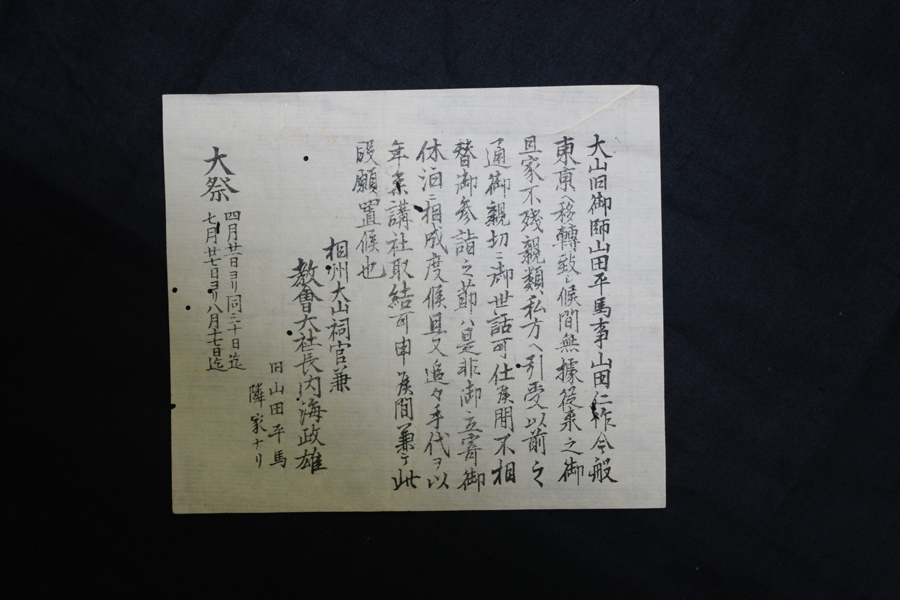 大山旧御師山田平馬事山田仁祚今般
東京へ移轉致シ候間無據従来之御
旦家不残親類私方へ引受以前之
通御親切ニ御世話可仕候間不相
替御参詣之節ハ是非御立寄御
休泊ニ相成度候且又追々手代ヲ以
年参講社取結可申候間兼テ此
段願置候也
相州大山祠官兼
教會大社長内海政雄
旧山田平馬
隣家ナリ
大祭
四月廿日ヨリ同三十日迄
七月廿七日ヨリ八月十七日迄